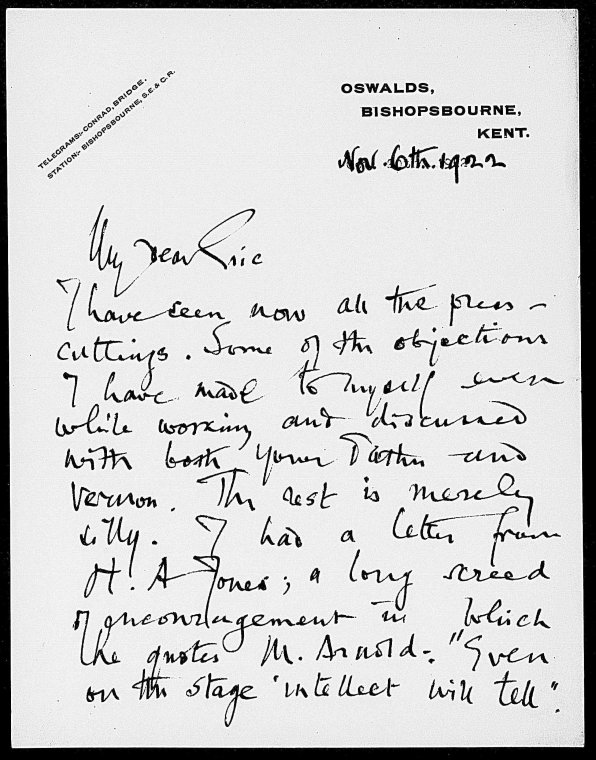 TELEGRAMS:- CONRAD, BRIDGE.
STATION:- BISHOPSBOURNE, S.E. & C.R.
OSWALDS,
BISHOPSBOURNE,
KENT.
Nov. 6th. 1922
My dear Eric
I have seen now all the press-
cuttings. Some of the objections
I have made to myself even
while working and discussed
with both your Father and
Vernon. The rest is merely
silly. I had a letter from
H. A Jones; a long screed
of encouragement in which
he quotes M. Arnold-: "Even
on the stage 'intellect will tell".